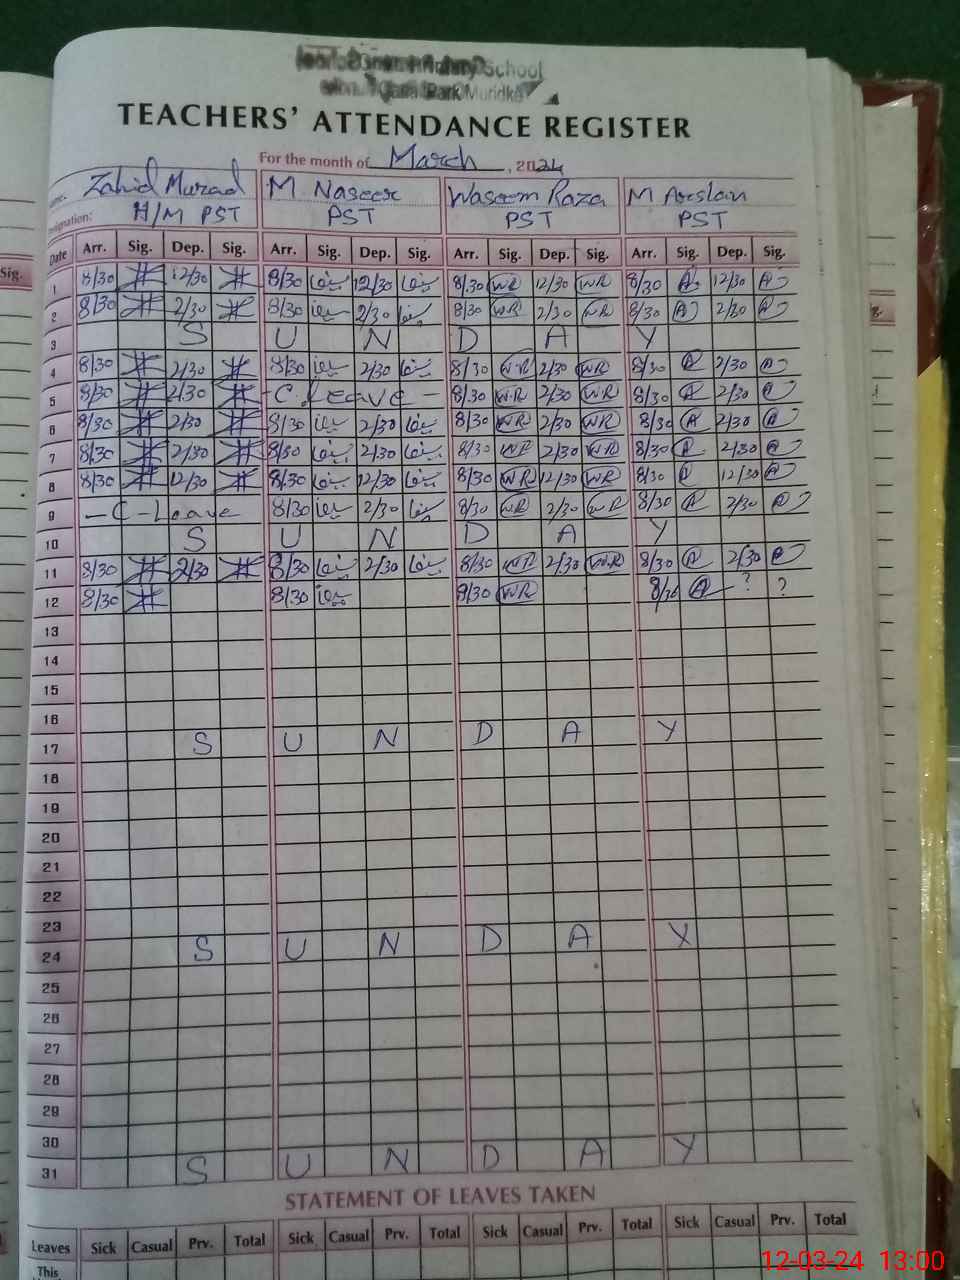 School
Park Muridke
TEACHERS' ATTENDANCE REGISTER
For the month of March, 2024
Zahid Murad M. Naseer Waseem Raza M Arslan
Designation: H/M PST PST PST PST
Date Arr. Sig. Dep. Sig. Arr. Sig. Dep. Sig. Arr. Sig. Dep. Sig. Arr. Sig. Dep. Sig.
1 8/30 12/30 8/30 12/30 8/30 WR 12/30 WR 8/30 A 12/30 A
2 8/30 2/30 8/30 2/30 8/30 WR 2/30 WR 8/30 A 2/30 A
3 S U N D A Y
4 8/30 2/30 8/30 2/30 8/30 WR 2/30 WR 8/30 A 2/30 A
5 8/30 2/30 - C. Leave - 8/30 WR 2/30 WR 8/30 A 2/30 A
6 8/30 2/30 8/30 2/30 8/30 WR 2/30 WR 8/30 A 2/30 A
7 8/30 2/30 8/30 2/30 8/30 WR 2/30 WR 8/30 A 2/30 A
8 8/30 12/30 8/30 12/30 8/30 WR 12/30 WR 8/30 A 12/30 A
9 - C - Leave 8/30 2/30 8/30 WR 2/30 WR 8/30 A 2/30 A
10 S U N D A Y
11 8/30 2/30 8/30 2/30 8/30 WR 2/30 WR 8/30 A 2/30 A
12 8/30 8/30 8/30 WR 8/30 A ? ?
13
14
15
16
17 S U N D A Y
18
19
20
21
22
23
24 S U N D A Y
25
26
27
28
29
30
31 S U N D A Y
STATEMENT OF LEAVES TAKEN
Leaves Sick Casual Prv. Total Sick Casual Prv. Total Sick Casual Prv. Total Sick Casual Prv. Total
This
12-03-24 13:00